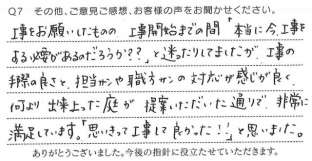 Q7 その他、ご意見ご感想、お客様の声をお聞かせください。
工事をお願いしたものの 工事開始までの間「本当に今、工事を
する必要があるのだろうか??」と迷ったりしてましたが、工事の
際の良さと、担当さんや職方さんの対応が感じが良く、
何より 出来上った庭が 提案いただいた通りで 非常に
満足しています。「思いきって工事して良かった!!」と思いました。
ありがとうございました。今後の指針に役立たせていただきます。